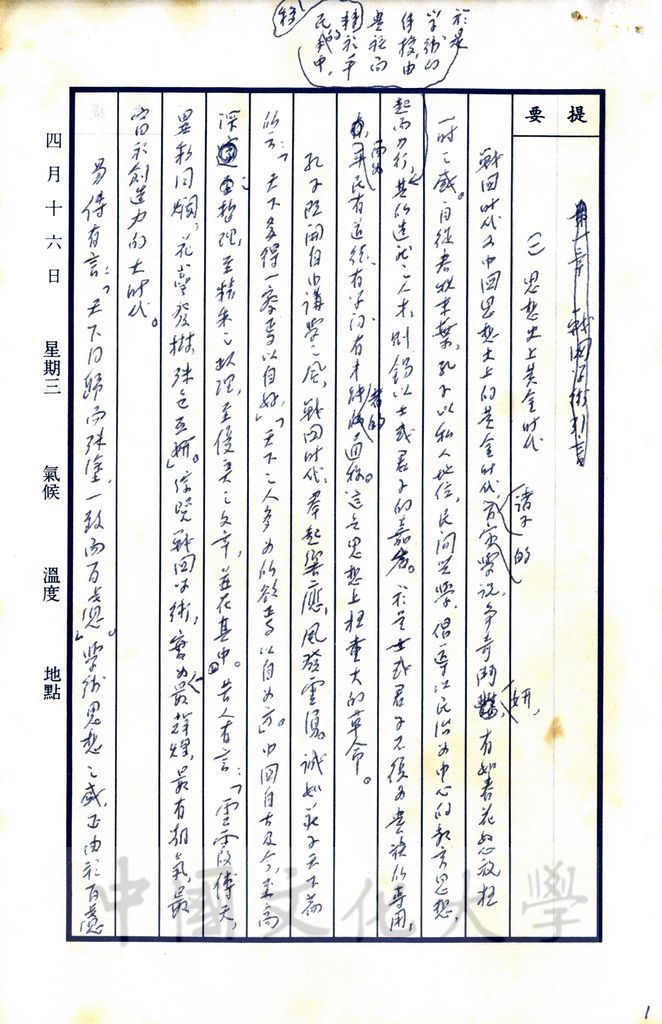 於是
學術的
傳授,由
貴族而
轉於平
民的
中,
提要
第一章 戰國學術引言
(一)思想史上黃金時代
戰國時代为中国思想史上的黃金時代,諸子的學說爭奇鬥妍,有如春花怒放極
一時之盛。自從春秋末葉,孔子以私人地位,民間興學,倡導以民治为中心的教育思想,
起而力行,其所造就之人才,則錫以士或君子的嘉名。於是士或君子不復为貴族所專用,
而为平民有道德有學问有才能者的通稱。這是思想上極重大的革命。
孔子既開自由講學之風,戰国時代,羣起響應,風發雲湧。誠如莊子天下篇
所云:「天下多得一察焉以自好」,「天下之人各为其所欲焉以自为方」。中国自古及今,至高
深之哲理,至精采之政理,至優美之文章,並在其中。昔人有言:「雲霞傅天,
異彩同爛,花萼發樹,殊色互妍」。綜覽戰国學術,實为最輝煌,最有朝氣,最
富於創造力的大時代。
易傳有言:「天下同歸而殊塗,一致而百慮」。學術思想之盛,正由於百慮
四月十六日 星期三 氣候 溫度 地點
中國文化大學
1